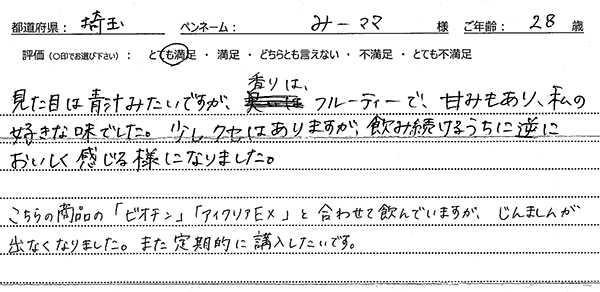 都道府県： 埼玉 ペンネーム： みーママ 様 ご年齢： 28 歳
評価（○印でお選び下さい）： とても満足 ・ 満足 ・ どちらとも言えない ・ 不満足 ・ とても不満足
香りは、
見た目は青汁みたいですが、フルーティーで、甘みもあり、私の
好きな味でした。少しクセはありますが、飲み続けるうちに逆に
おいしく感じる様になりました。
こちらの商品の「ビオチン」「アイクリアEX」と合わせて飲んでいますが、じんましんが
出なくなりました。また定期的に講入したいです。